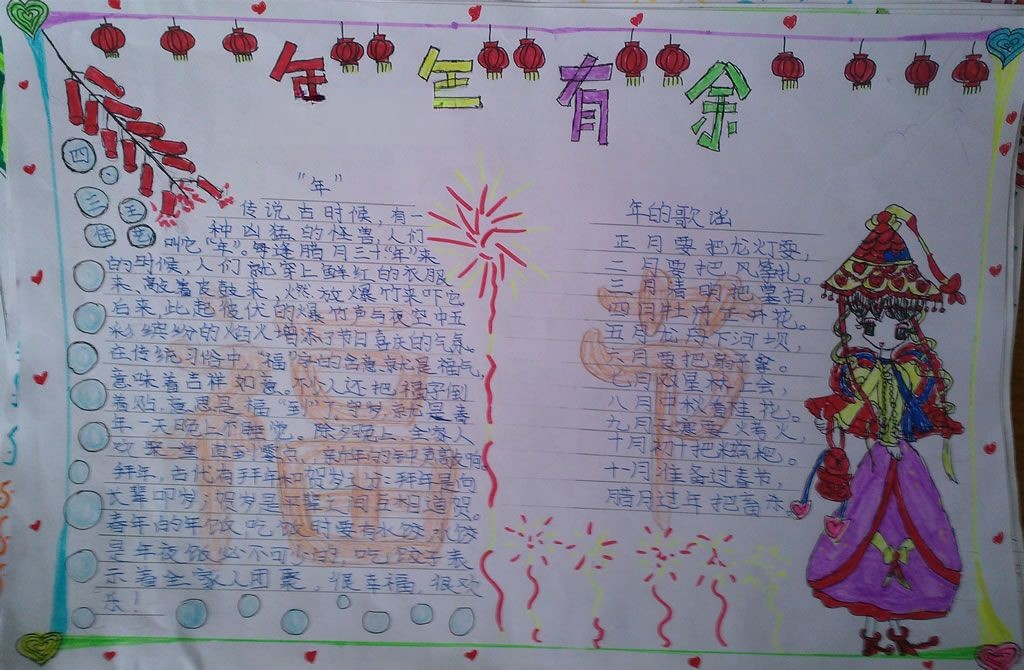 年年有余
四
三 王
佳
“年”
传说古时候，有一
种凶猛的怪兽，人们
叫它“年”。每逢腊月三十“年”来
的时候，人们就穿上鲜红的衣服
来，敲着皮鼓来，燃放爆竹来吓它
后来，此起彼伏的爆竹声与夜空中五
彩缤纷的焰火增添了节日喜庆的气氛。
在传统习俗中，“福”字的含意就是福气。
意味着吉祥如意。不少人还把福字倒
着贴，意思是福“到”了。守岁就是
年一天晚上不睡觉。除夕晚上，全家人
欢聚一堂
拜年，古代有拜年和贺岁之分：拜年是向
长辈叩岁；贺岁是平辈之间互相道贺。
春年的年饭，吃饭时要有水饺，水饺
是年夜饭必不可少的，吃饺子表
示着全家人团聚，很幸福，很欢
乐！
年的歌谣
正月要把龙灯耍，
二月要把风筝扎。
三月清明把墓扫，
四月牡丹正开花。
五月龙舟下河坝，
六月要把扇子拿。
七月双星林上会，
八月中秋看桂花。
九月天寒要烤火，
十月初十把
十一月准备过春节，
腊月过年把畜杀。